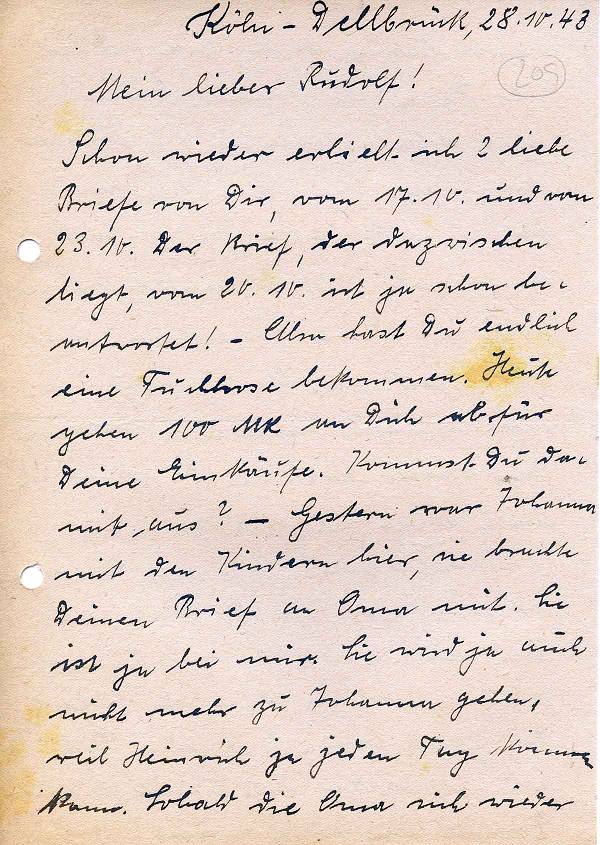 Köln-Dellbrück, 28.10.43
209
Mein lieber Rudolf!
Schon wieder erhielt ich 2 liebe
Briefe von Dir, vom 17.10. und vom
23.10. Der Brief, der dazwischen
liegt, vom 20.10. ist ja schon be-
antwortet! - Also hast Du endlich
eine Tuchhose bekommen. Heute
gehen 100 MK an Dich ab für
Deine Einkäufe. Kommst Du da-
mit aus? - Gestern war Johanna
mit den Kindern hier, sie brachte
Deinen Brief an Oma mit. Sie
ist ja bei mir. Sie wird ja auch
nicht mehr zu Johanna gehen,
weil Heinrich ja jeden Tag kommen
kann. Sobald die Oma sich wieder